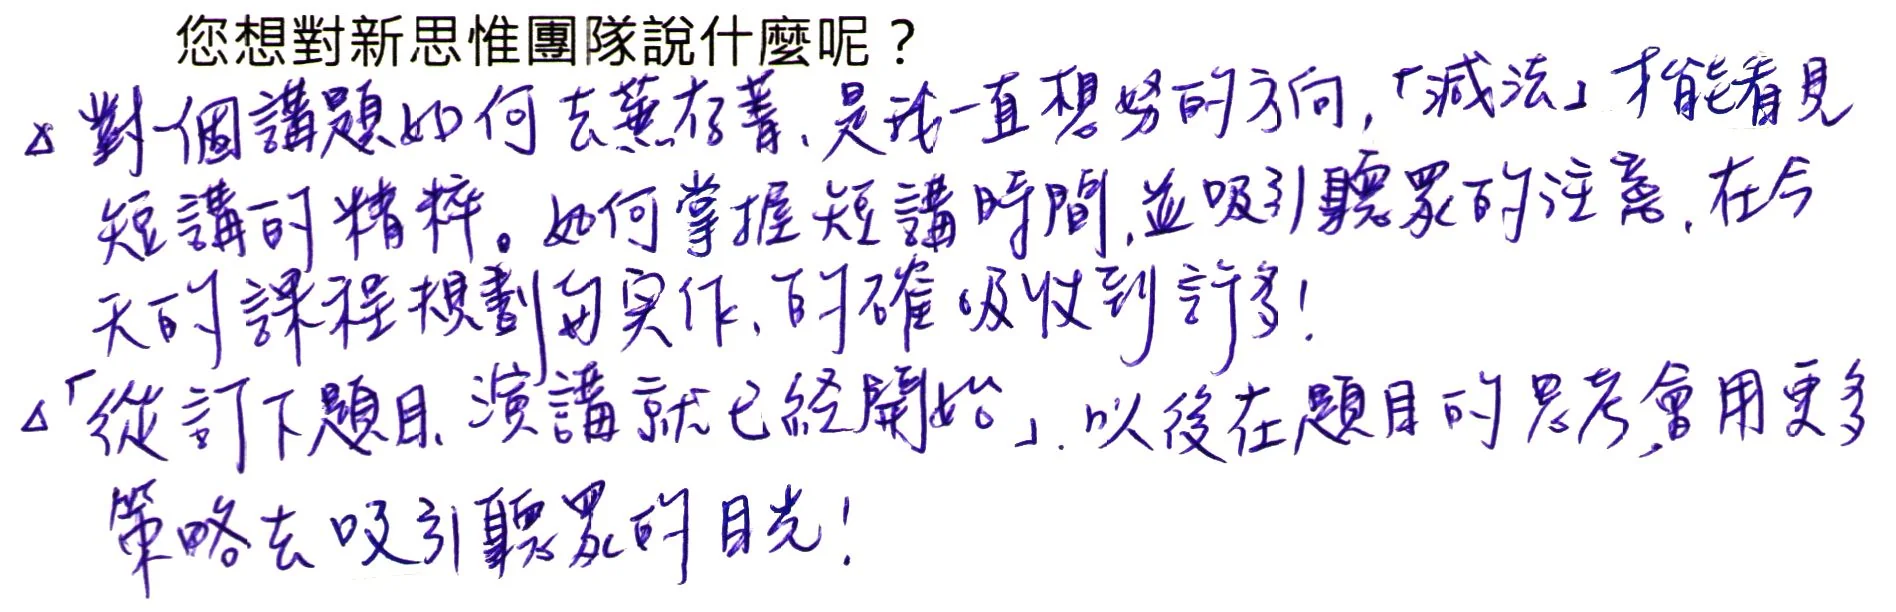 您想對新思惟團隊說什麼呢？
△ 對一個講題如何去蕪存菁、是我一直想努的方向，「減法」才能看見
短講的精粹。如何掌握短講時間，並吸引聽眾的注意，在今
天的課程規劃與实作，的確吸收到許多！
△「從訂下題目、演講就已經開始」. 以後在題目的思考，會用更多
策略去吸引聽眾的目光！